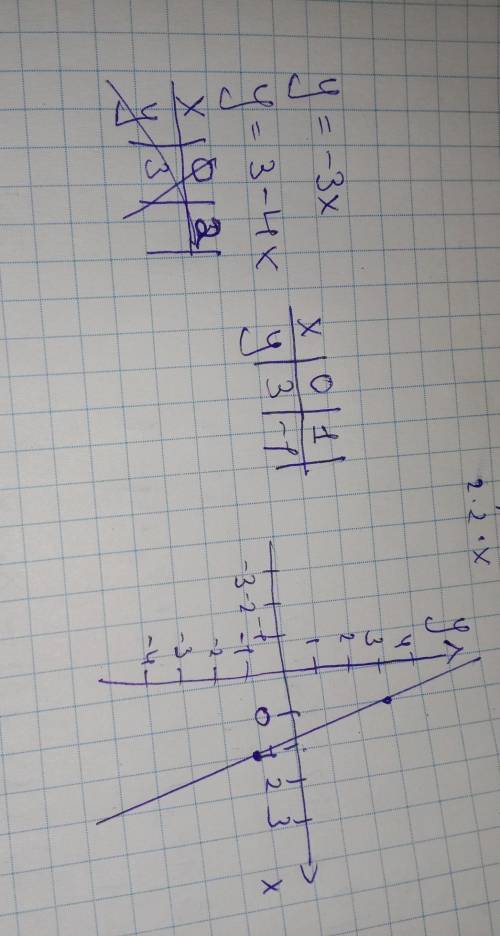 y = -3x
y = 3 - 4x
x 0 2
y 3
x 0 1
y 3 -1
2·2·x
y
4
3
2
1
-3 -2 -1 0 1 2 3 x
-1
-2
-3
-4